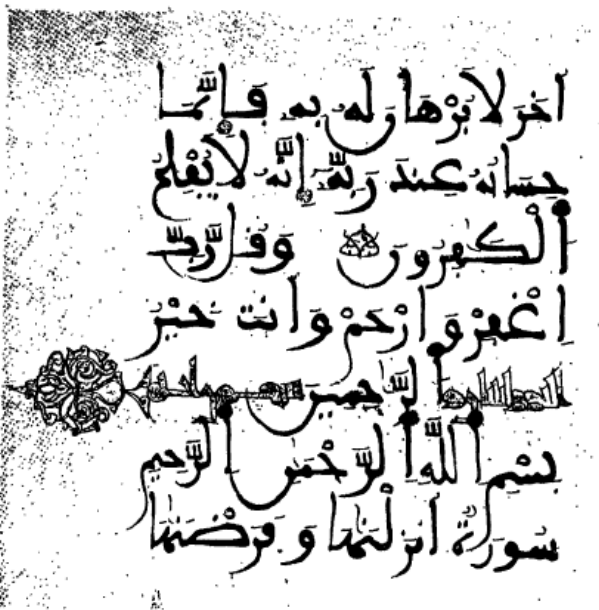 اخَرَ لَا بُرْهَانَ لَهُ بِهِ فَإِنَّمَا
حِسَابُهُ عِندَ رَبِّهِ إِنَّهُ لَا يُفْلِحُ
الْكَفِرُونَ وَقُل رَّبِّ
اغْفِرْ وَارْحَمْ وَأَنتَ خَيْرُ
الرَّحِمِينَ
بِسْمِ اللَّهِ الرَّحْمَنِ الرَّحِيمِ
سُورَةٌ أَنزَلْنَهَا وَفَرَضْنَهَا